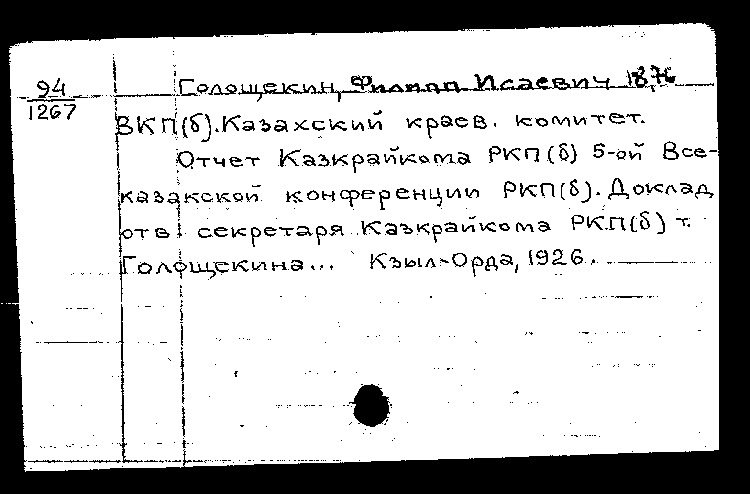 94
1267
Голощекин, Филипп Исаевич 1876
ВКП(б). Казахский краев. комитет.
Отчет Казкрайкома РКП(б) 5-ой Все-
казакской конференции РКП(б). Доклад
отв. секретаря Казкрайкома РКП(б) т.
Голощекина... Кзыл-Орда, 1926.